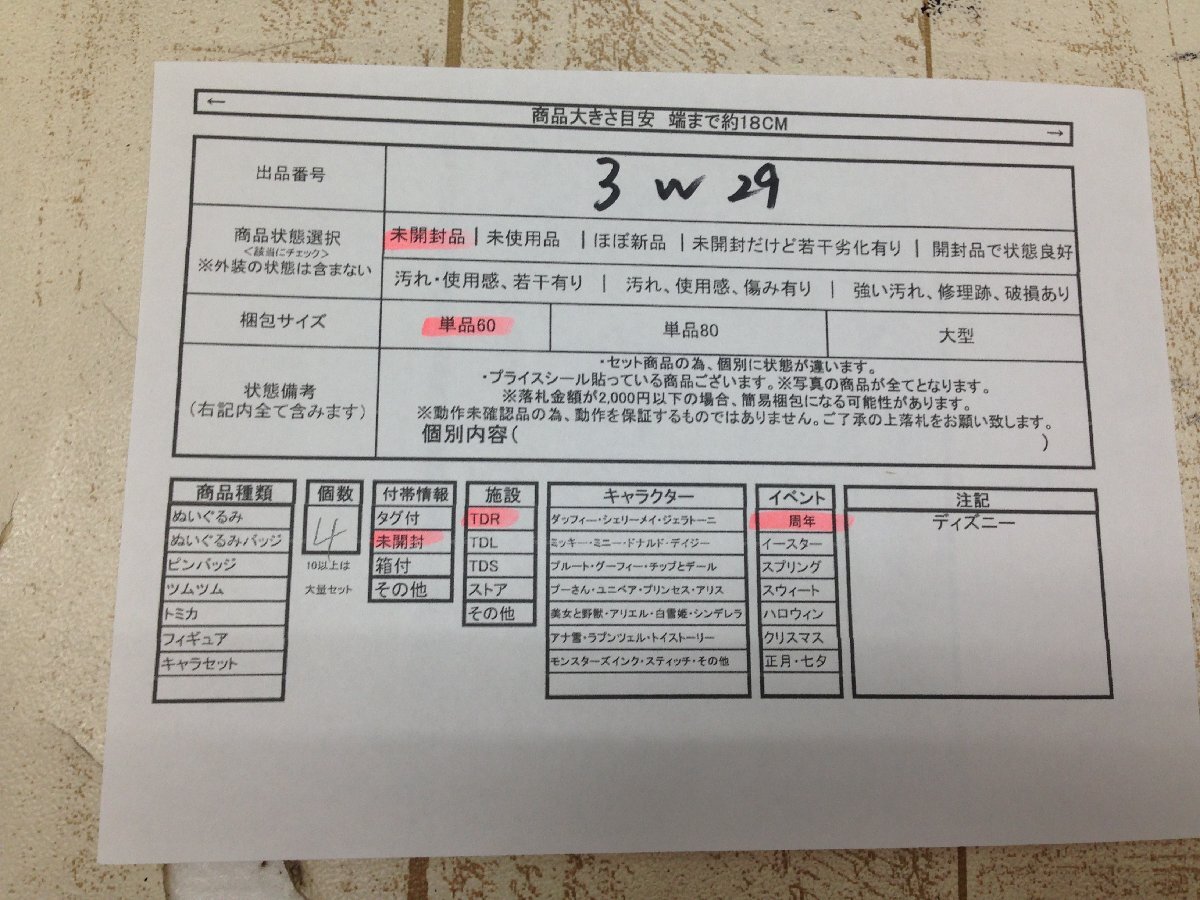 ← 商品大きさ目安 端まで約18CM →
出品番号 3 W 29
商品状態選択
<該当にチェック>
※外装の状態は含まない
未開封品 | 未使用品 | ほぼ新品 | 未開封だけど若干劣化有り | 開封品で状態良好
汚れ・使用感、若干有り | 汚れ、使用感、傷み有り | 強い汚れ、修理跡、破損あり
梱包サイズ 単品60 単品80 大型
状態備考
(右記内全て含みます)
・セット商品の為、個別に状態が違います。
・プライスシール貼っている商品ございます。※写真の商品が全てとなります。
※落札金額が2,000円以下の場合、簡易梱包になる可能性があります。
※動作未確認品の為、動作を保証するものではありません。ご了承の上落札をお願い致します。
個別内容( )
商品種類
ぬいぐるみ
ぬいぐるみバッジ
ピンバッジ
ツムツム
トミカ
フィギュア
キャラセット
個数
4
10以上は
大量セット
付帯情報
タグ付
未開封
箱付
その他
施設
TDR
TDL
TDS
ストア
その他
キャラクター
ダッフィー・シェリーメイ・ジェラトーニ
ミッキー・ミニー・ドナルド・デイジー
プルート・グーフィー・チップとデール
プーさん・ユニベア・プリンセス・アリス
美女と野獣・アリエル・白雪姫・シンデレラ
アナ雪・ラプンツェル・トイストーリー
モンスターズインク・スティッチ・その他
イベント
周年
イースター
スプリング
スウィート
ハロウィン
クリスマス
正月・七夕
注記
ディズニー